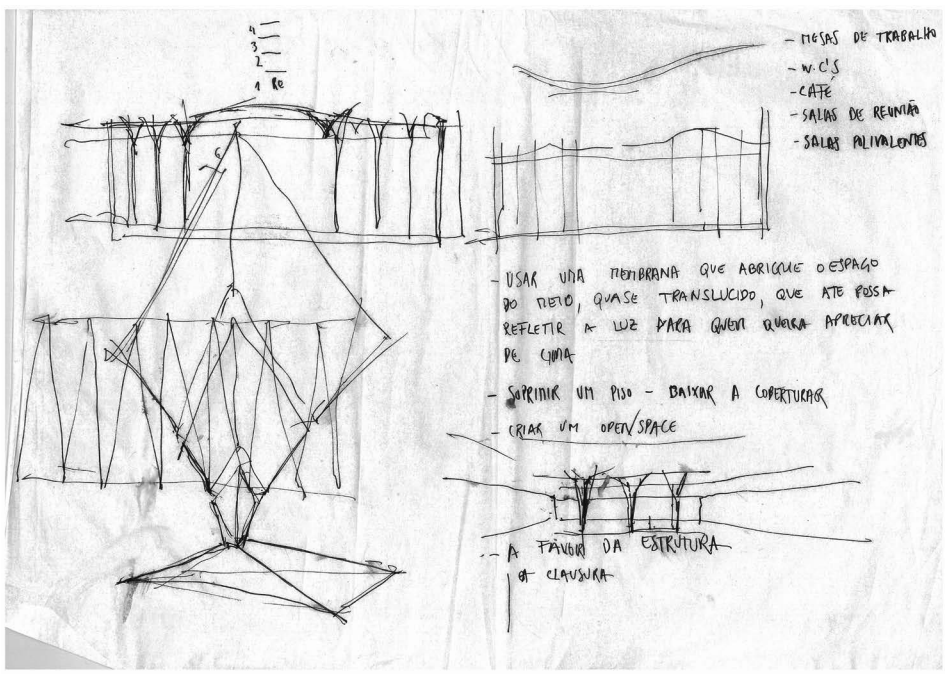 4
3
2
1 R0
- MESAS DE TRABALHO
- W.C'S
- CAFÉ
- SALAS DE REUNIÃO
- SALAS POLIVALENTES
- USAR UMA MEMBRANA QUE ABRIGUE O ESPAÇO
DO MEIO, QUASE TRANSLUCIDO, QUE ATE POSSA
REFLETIR A LUZ PARA QUEM QUEIRA APRECIAR
DE CIMA
- SUPRIMIR UM PISO - BAIXAR A COBERTURA
- CRIAR UM OPEN/SPACE
- A FAVOR DA ESTRUTURA
CLAUSURA